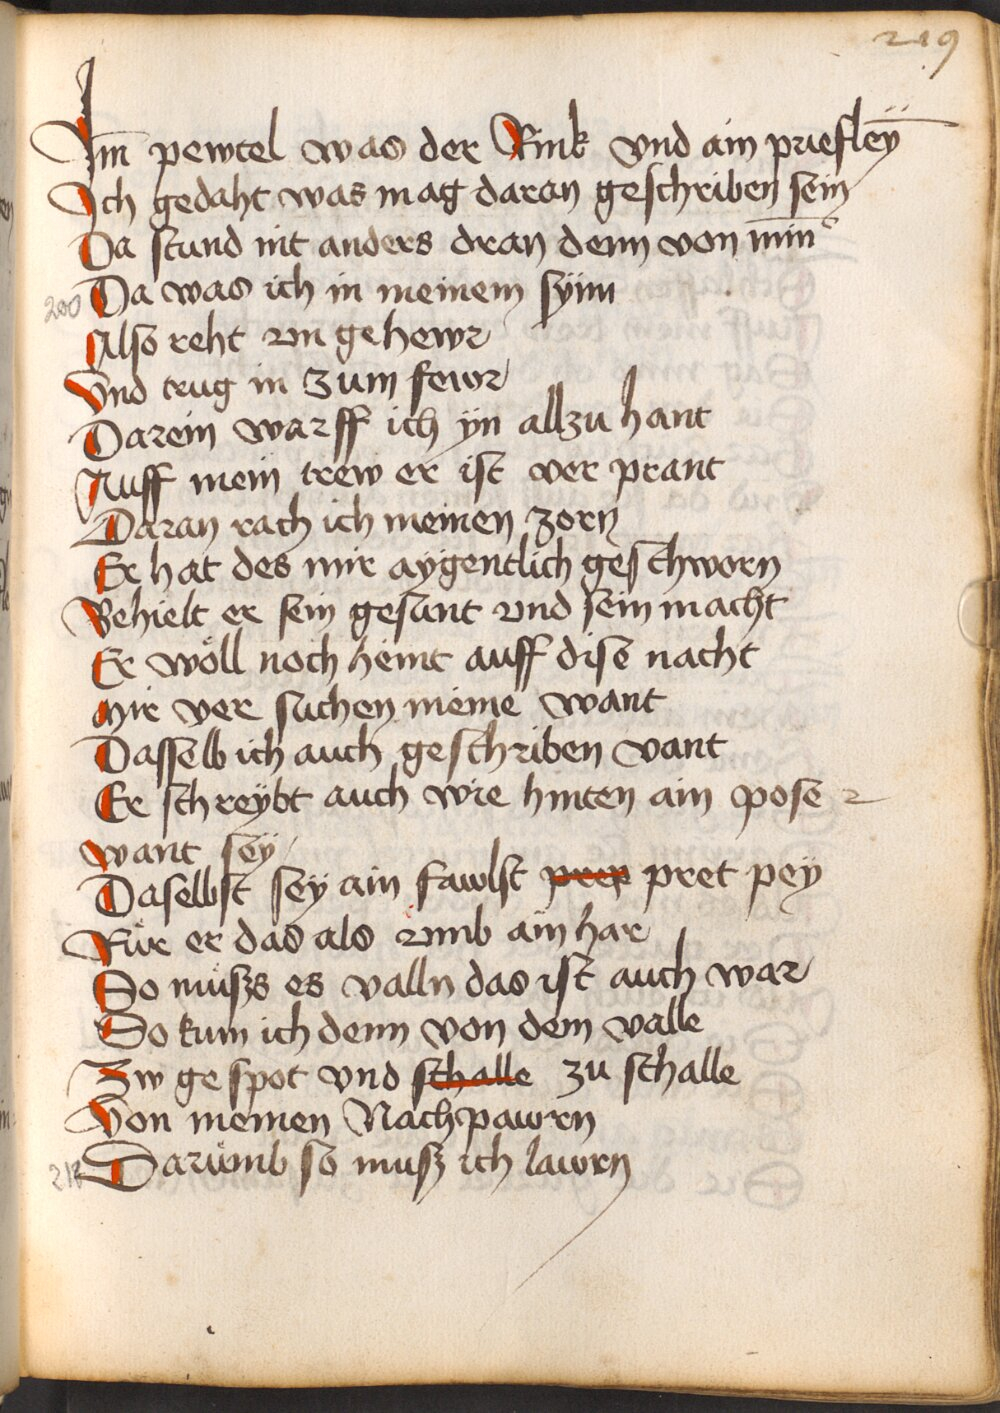 219
Im̄ pewtel was der Rink vnd ain prieflëy̅
Ich gedaht was mag daran geschriben sein
Da stund nit anders dran denn von min̅
200 Da was ich in meinem sÿnn
Also reht vngehewr
Vnd trug in zum fewr
Darein warff ich ÿn allzu hant
Auff mein trew er ist ver prant
Daran rach ich meinen zorn
Er hat des mir aÿgentlich geschworn
Behielt er sein gesunt vnd sein macht
Er wöll noch heint auff dise nacht
Mir ver suchen meine want
Dasselb ich auch geschriben vant
Er schreÿbt auch wie hinten ain pose
want seÿ
Daselbst seÿ ain fawlst prep pret peÿ
Rür er das als vmb ain har
So müsßs es valln das ist auch war
So kum ich denn von dem valle
Zw gespot vnd schalle zu schalle
Von meinen Nachpawrn
218 Darümb so musß ich lawrn